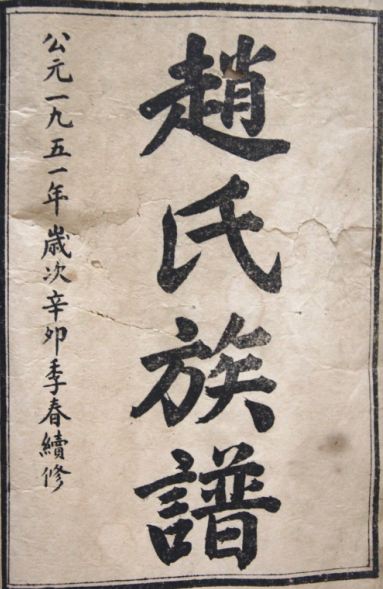 趙氏族譜
公元一九五一年歲次辛卯季春續修